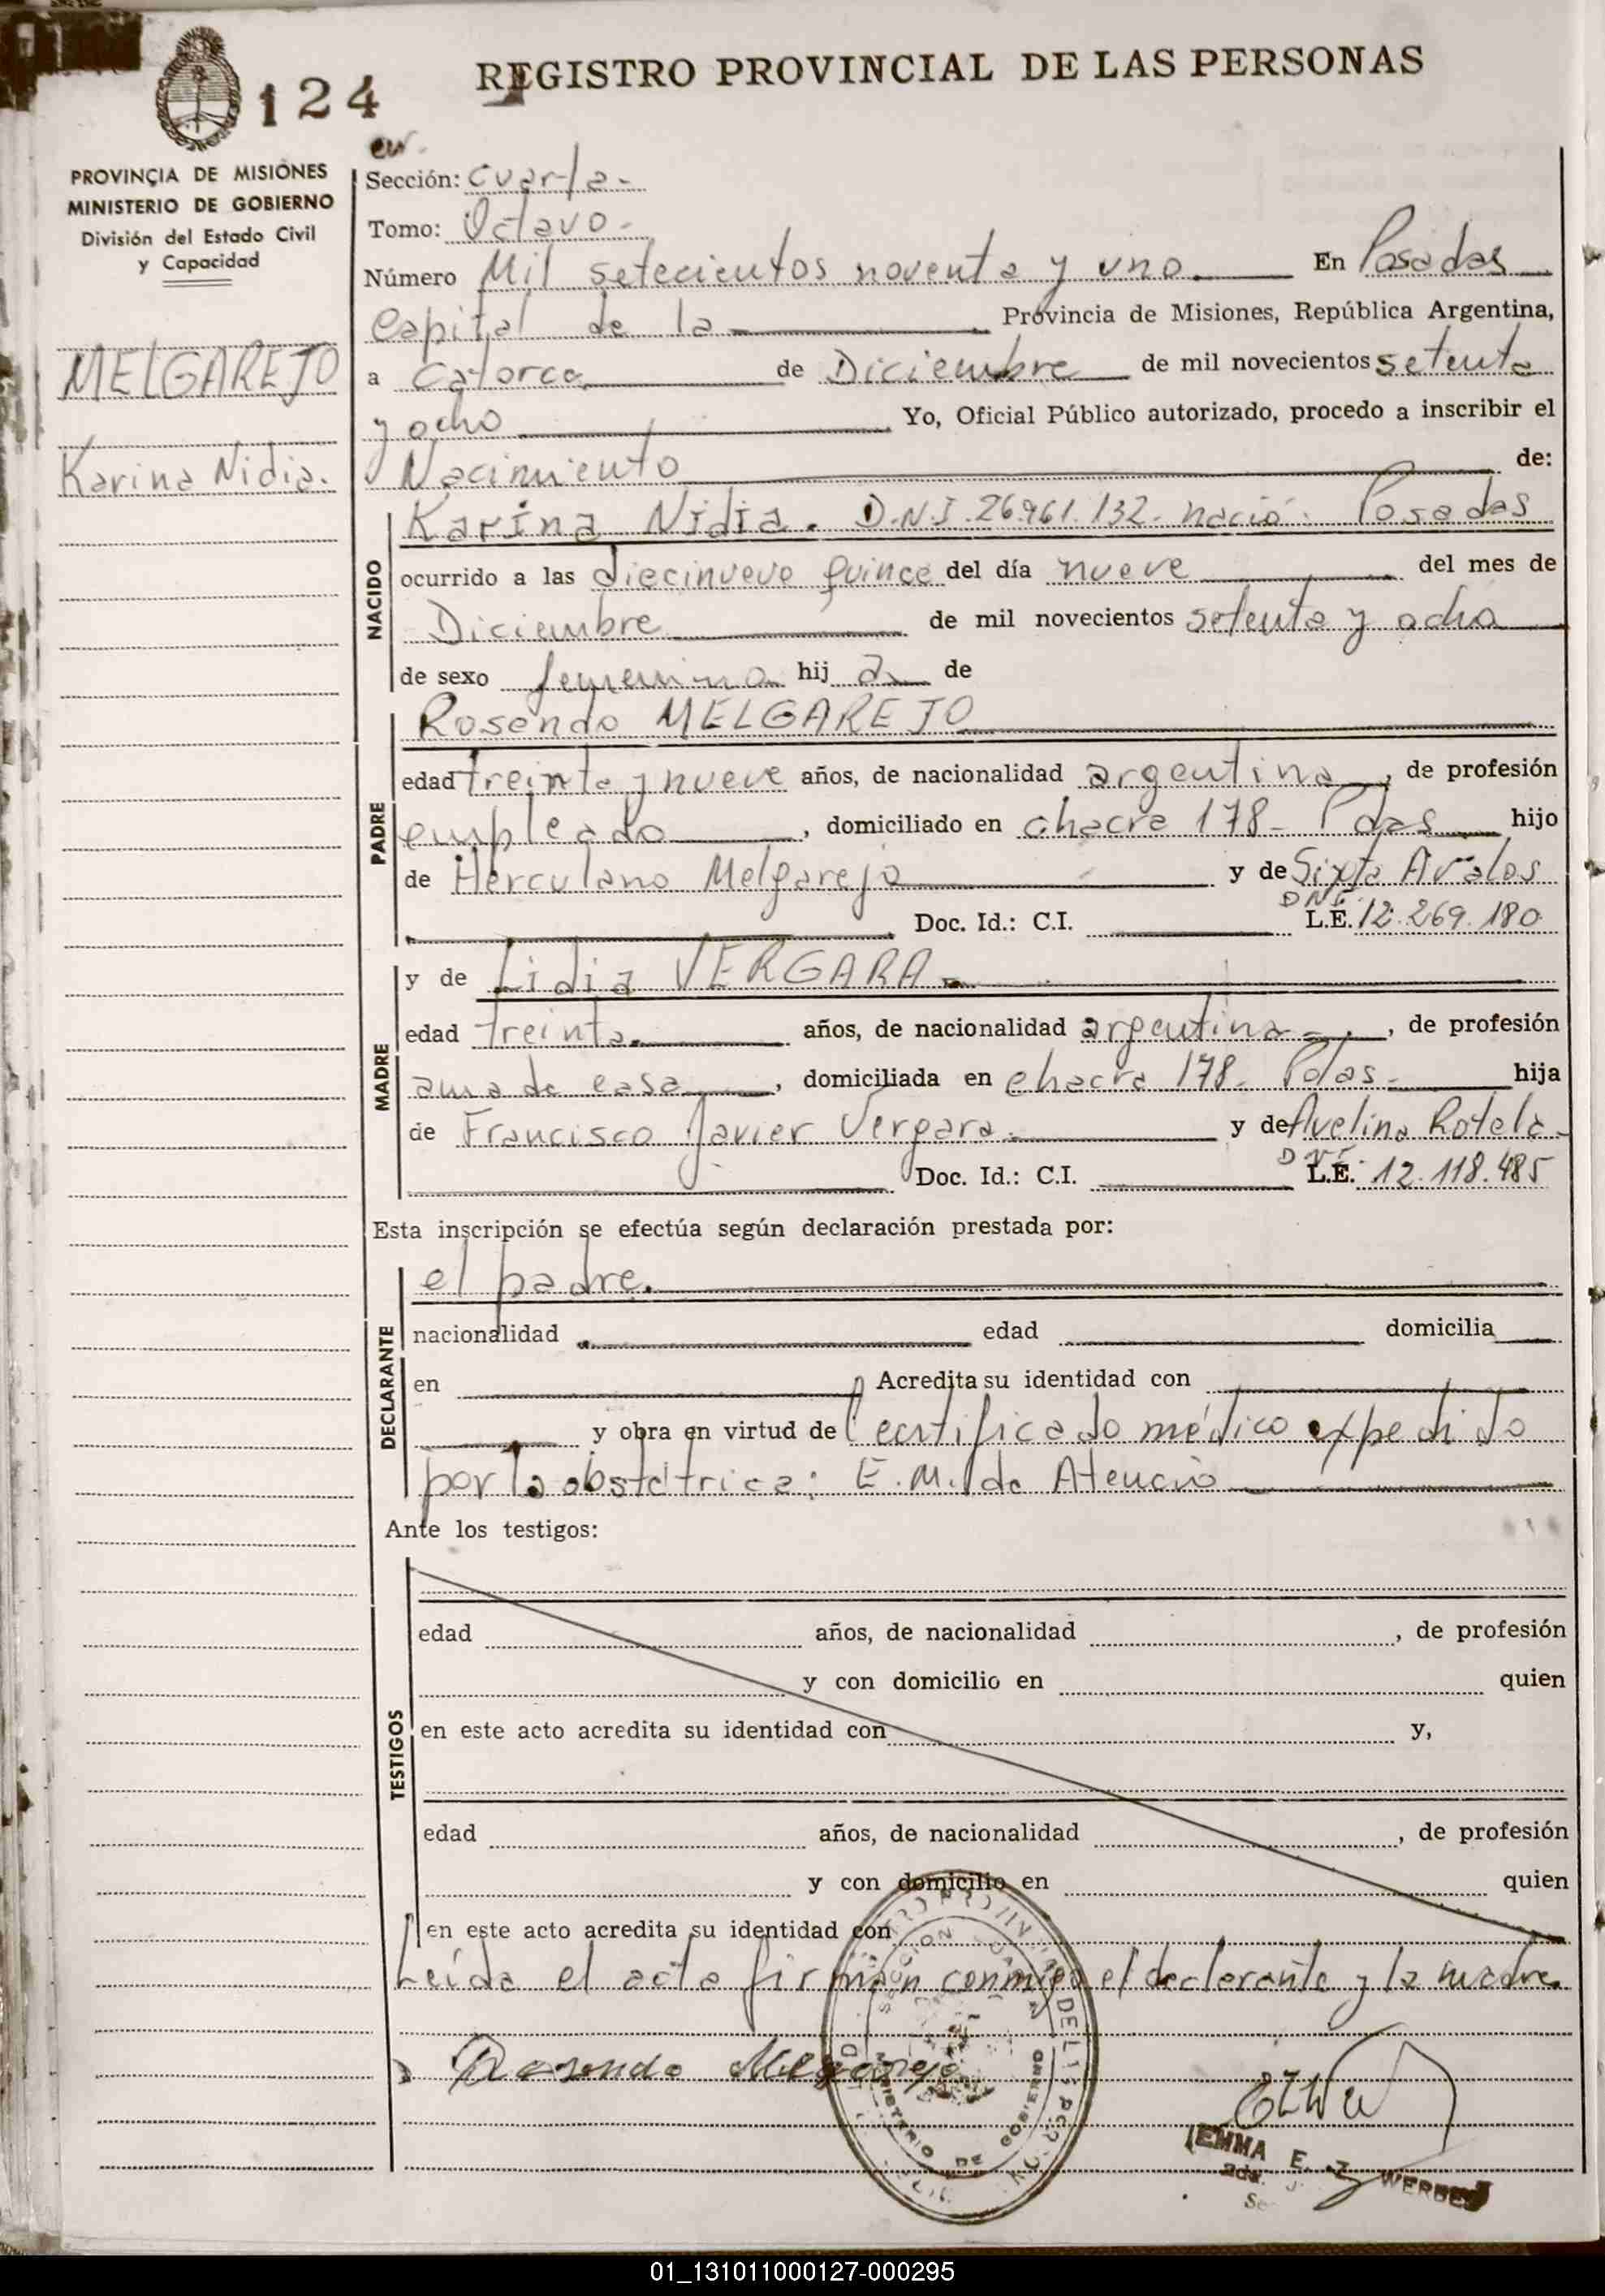 124
REGISTRO PROVINCIAL DE LAS PERSONAS
PROVINCIA DE MISIONES
MINISTERIO DE GOBIERNO
División del Estado Civil
y Capacidad
MELGAREJO
Karina Nidia.
Sección: Cuarta-
Tomo: Octavo-
Número Mil setecientos noventa y uno En Posadas
Capital de la Provincia de Misiones, República Argentina,
a catorce de Diciembre de mil novecientos setenta
y ocho Yo, Oficial Público autorizado, procedo a inscribir el
Nacimiento de:
NACIDO
Karina Nidia. D.N.I. 26.961.132- nació: Posadas
ocurrido a las diecinueve quince del día nueve del mes de
Diciembre de mil novecientos setenta y ocho
de sexo femenino hij a de
PADRE
Rosendo MELGAREJO
edad treinta y nueve años, de nacionalidad argentina, de profesión
empleado, domiciliado en chacra 178- Pdas hijo
de Herculano Melgarejo y de Sixta Avalos
DNI
Doc. Id.: C.I. L.E. 12.269.180
MADRE
y de Lidia VERGARA
edad treinta. años, de nacionalidad argentina, de profesión
ama de casa, domiciliada en chacra 178- Pdas- hija
de Francisco Javier Vergara y de Avelina Rotela-
DNI
Doc. Id.: C.I. L.E. 12.118.485
Esta inscripción se efectúa según declaración prestada por:
DECLARANTE
el padre.
nacionalidad edad domicilia
en Acredita su identidad con
y obra en virtud de certificado médico expedido
por la obstetrica: E. M. de Atencio
Ante los testigos:
TESTIGOS
edad años, de nacionalidad , de profesión
y con domicilio en quien
en este acto acredita su identidad con y,
edad años, de nacionalidad , de profesión
y con domicilio en quien
en este acto acredita su identidad con
Leída el acta firman conmigo el declarante y la madre
Rosendo Melgarejo
MINISTERIO DE GOBIERNO
EMMA E. Z.
01_131011000127-000295